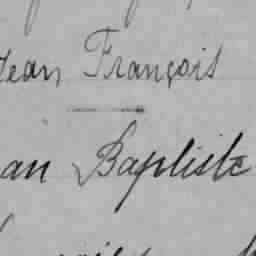 Jean François
an Baptiste